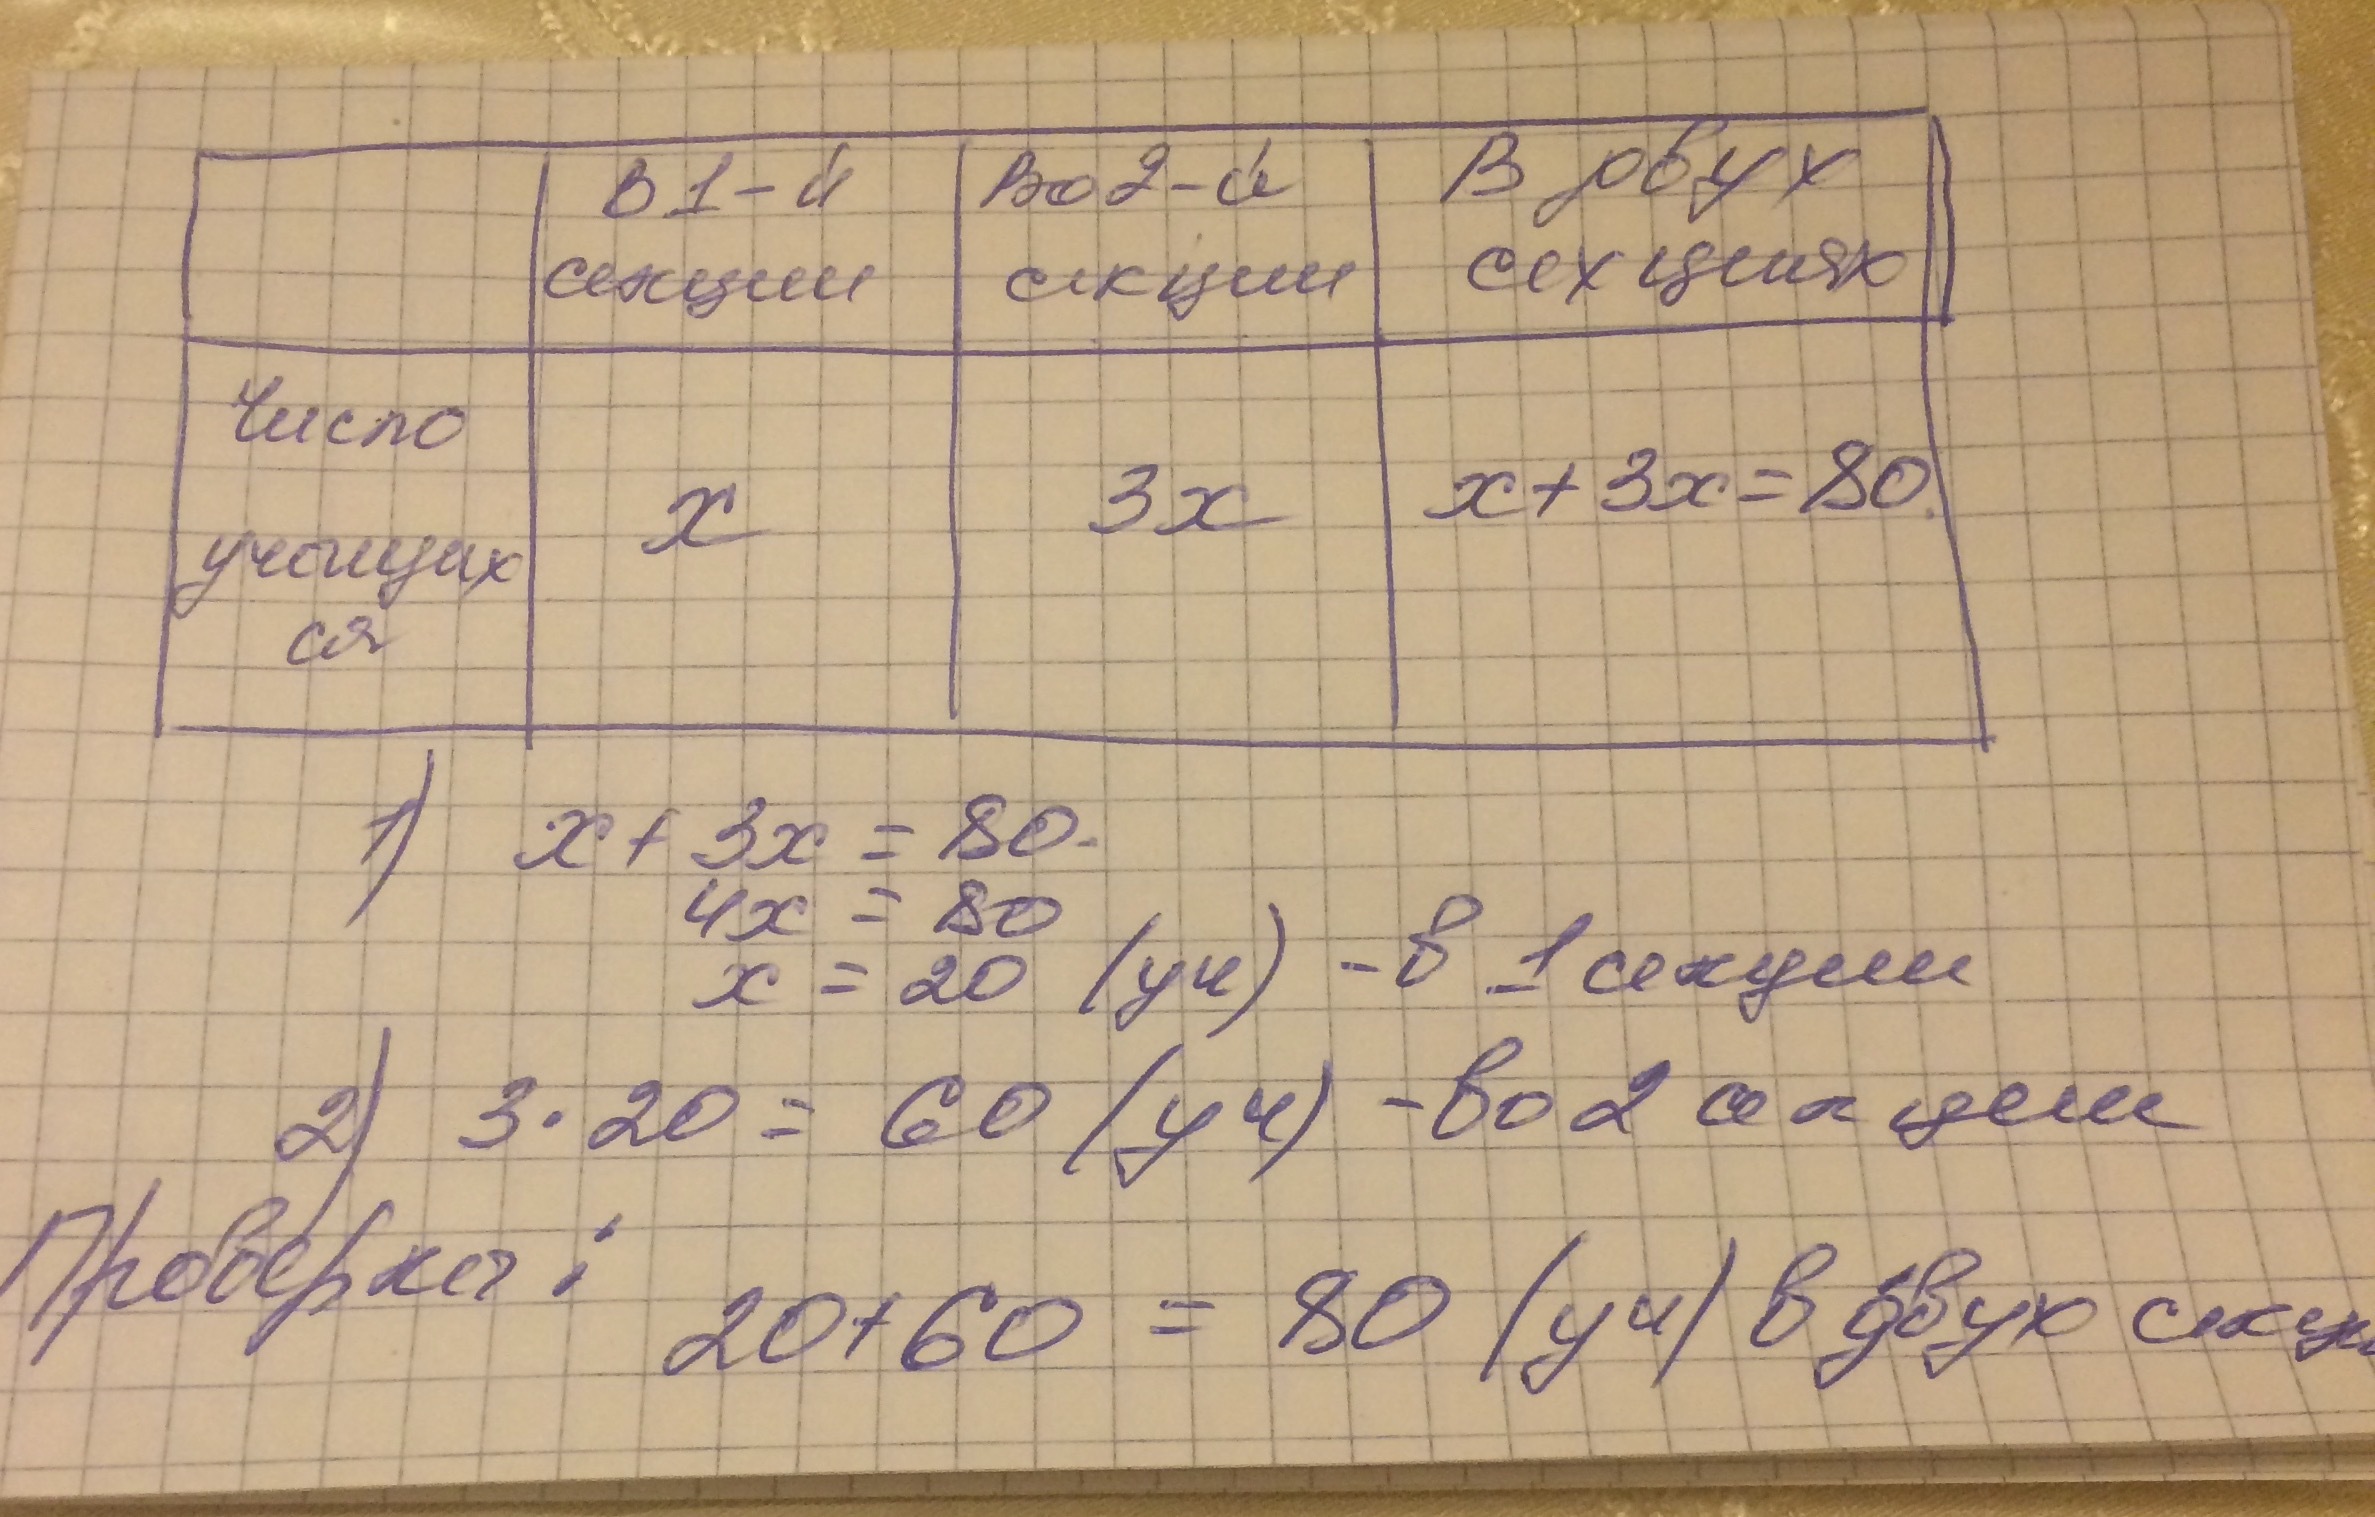 В 1-й Во 2-й В двух
секции секции секциях
Число
x 3x x + 3x = 80.
учащих
ся
1) x + 3x = 80.
4x = 80
x = 20 (уч) - в 1 секции
2) 3 · 20 = 60 (уч) - во 2 секции
Проверка:
20 + 60 = 80 (уч) в двух секц